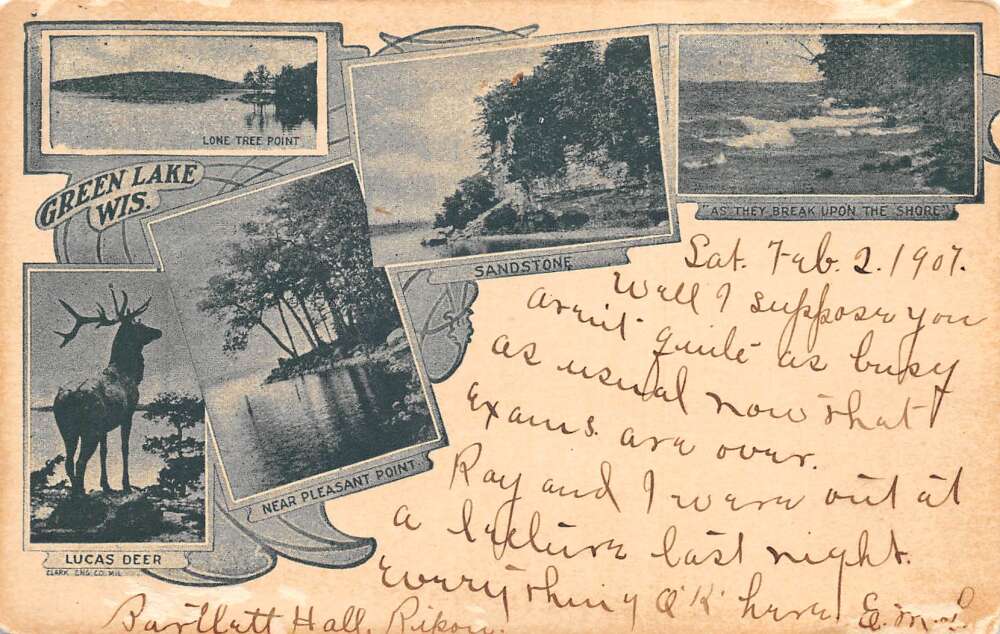 LONE TREE POINT
GREEN LAKE
WIS.
SANDSTONE
"AS THEY BREAK UPON THE SHORE"
NEAR PLEASANT POINT
LUCAS DEER
CLARK ENG. CO. MIL.
Sat. Feb. 2. 1907.
Well I suppose you
aren't quite as busy
as usual now that
Exams. are over.
Ray and I were out at
a lecture last night.
Everything O'K' here. E.M.L.
Bartlett Hall, Ripon.